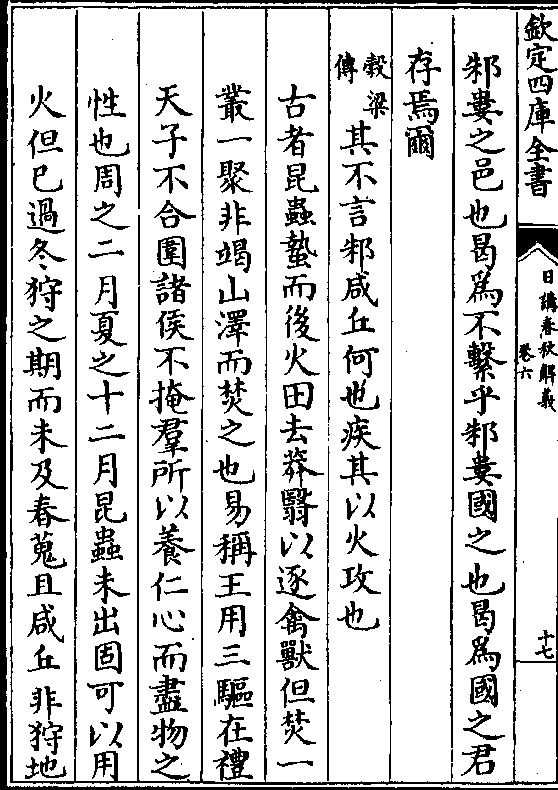 欽定四庫全書
日講春秋解義
卷六
十七
邾婁之邑也曷爲不繫乎邾婁國之也曷爲國之君
存焉爾
穀梁
傳
其不言邾咸丘何也疾其以火攻也
古者昆蟲蟄而後火田去莽翳以逐禽獸但焚一
叢一聚非竭山澤而焚之也易稱王用三驅在禮
天子不合圍諸侯不掩羣所以養仁心而盡物之
性也周之二月夏之十二月昆蟲未出固可以用
火但已過冬狩之期而未及春蒐且咸丘非狩地